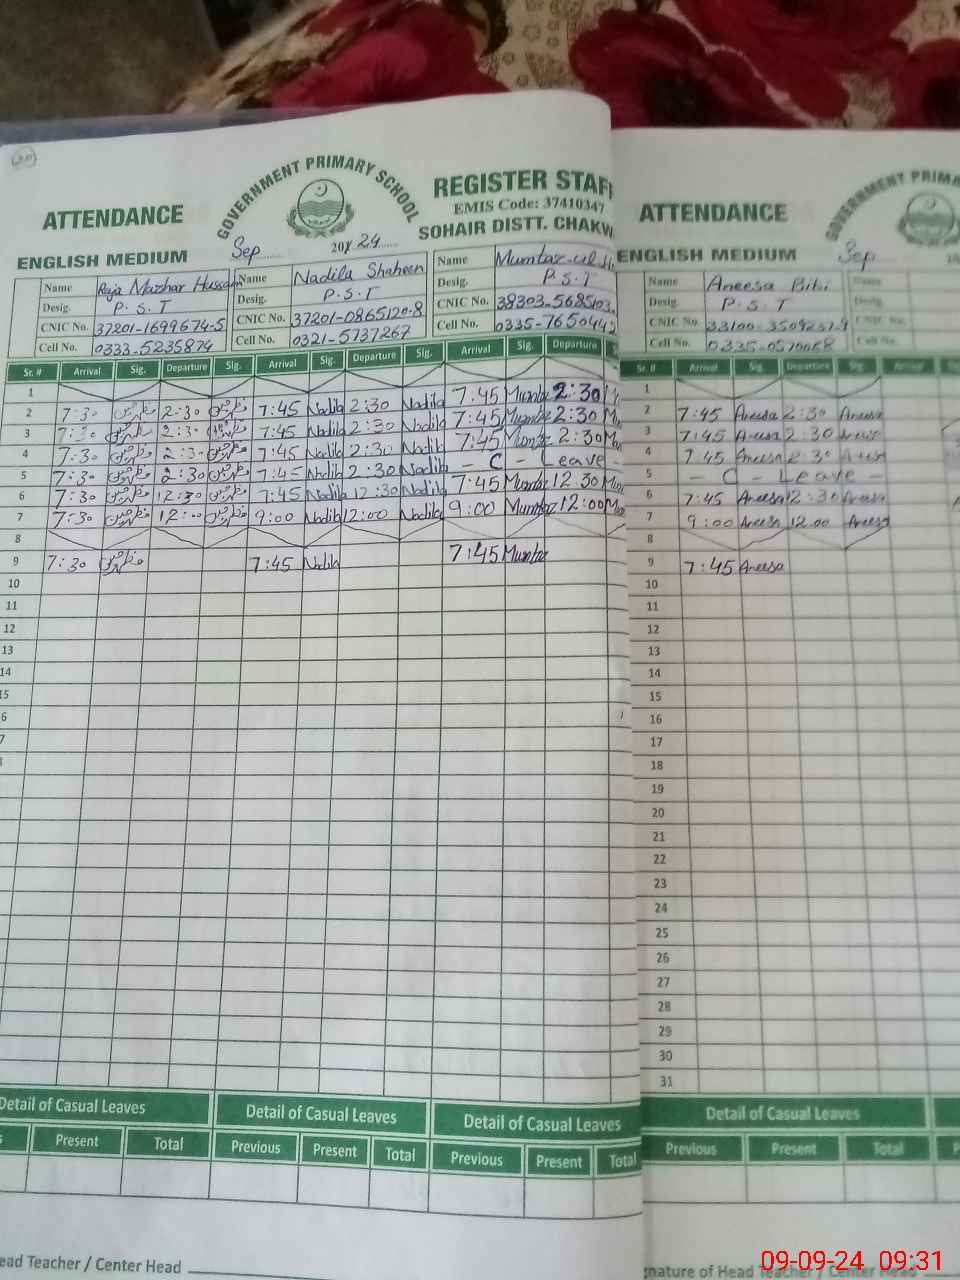 GOVERNMENT PRIMARY SCHOOL
ATTENDANCE REGISTER STAFF
EMIS Code: 37410347
SOHAIR DISTT. CHAKW
ENGLISH MEDIUM Sep 2024
Name Raja Mazhar Hussain Name Nadila Shaheen Name Mumtaz-ul-
Desig. P.S.T Desig. P.S.T Desig. P.S.T
CNIC No. 37201-1699674-5 CNIC No. 37201-0865120-8 CNIC No. 38303-5685103-
Cell No. 0333-5235874 Cell No. 0321-5737267 Cell No. 0335-765044
Sr. # Arrival Sig. Departure Sig. Arrival Sig. Departure Sig. Arrival Sig. Departure
1
2 7:30 2:30 7:45 Nadila 2:30 Nadila 7:45 Mumtaz 2:30
3 7:30 2:30 7:45 Nadila 2:30 Nadila 7:45 Mumtaz 2:30
4 7:30 2:30 7:45 Nadila 2:30 Nadila 7:45 Mumtaz 2:30
5 7:30 2:30 7:45 Nadila 2:30 Nadila - C - Leave -
6 7:30 12:30 7:45 Nadila 12:30 Nadila 7:45 Mumtaz 12:30
7 7:30 12:00 9:00 Nadila 12:00 Nadila 9:00 Mumtaz 12:00
8
9 7:30 7:45 Nadila 7:45 Mumtaz
10
11
12
13
14
15
6
7
Detail of Casual Leaves Detail of Casual Leaves Detail of Casual Leaves
Present Total Previous Present Total Previous Present Total
ead Teacher / Center Head
GOVERNMENT PRIMA
ATTENDANCE
ENGLISH MEDIUM Sep
Name Aneesa Bibi Name
Desig. P.S.T Desig.
CNIC No. CNIC No.
Cell No. Cell No.
Sr. # Arrival Sig. Departure Sig. Arrival
1
2 7:45 Aneesa 2:30 Aneesa
3 7:45 Aneesa 2:30 Aneesa
4 7:45 Aneesa 2:30 Aneesa
5 - C - Leave -
6 7:45 Aneesa 12:30 Aneesa
7 9:00 Aneesa 12:00 Aneesa
8
9 7:45 Aneesa
10
11
12
13
14
15
16
17
18
19
20
21
22
23
24
25
26
27
28
29
30
31
Detail of Casual Leaves
Previous Present Total
gnature of Head Teacher / Center Head
09-09-24 09:31